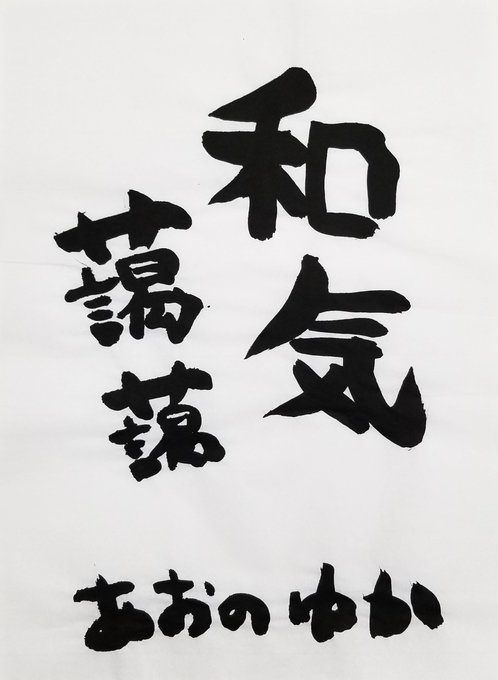 和気
藹藹
あおのゆか